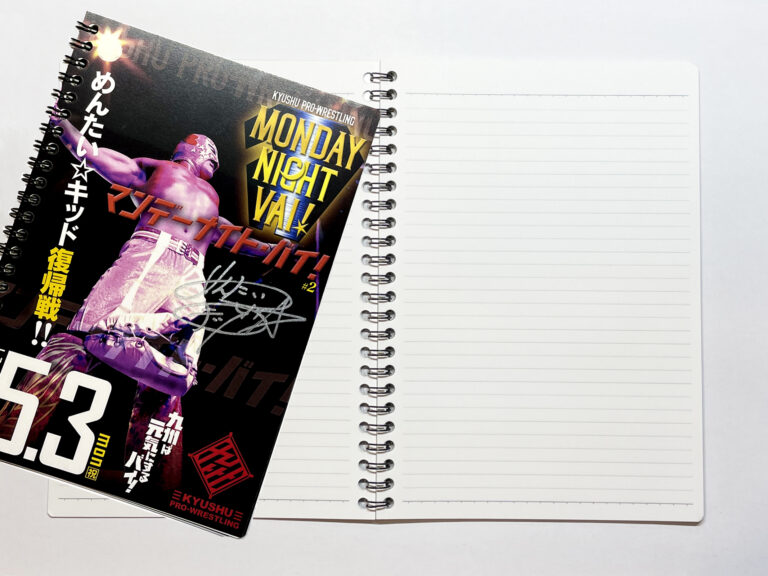 KYUSHU PRO-WRESTLING
MONDAY
NIGHT
VAI!
マンデーナイト・バイ!
#2
めんたい☆キッド復帰戦!!
めんたい
5.3
mon
祝
九州ば
元気にする
バイ!
KYUSHU
PRO-WRESTLING